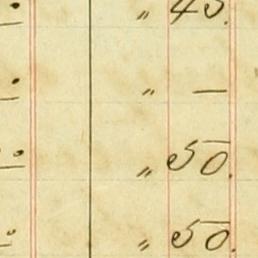 " 45.
" —
" 50.
" 50.